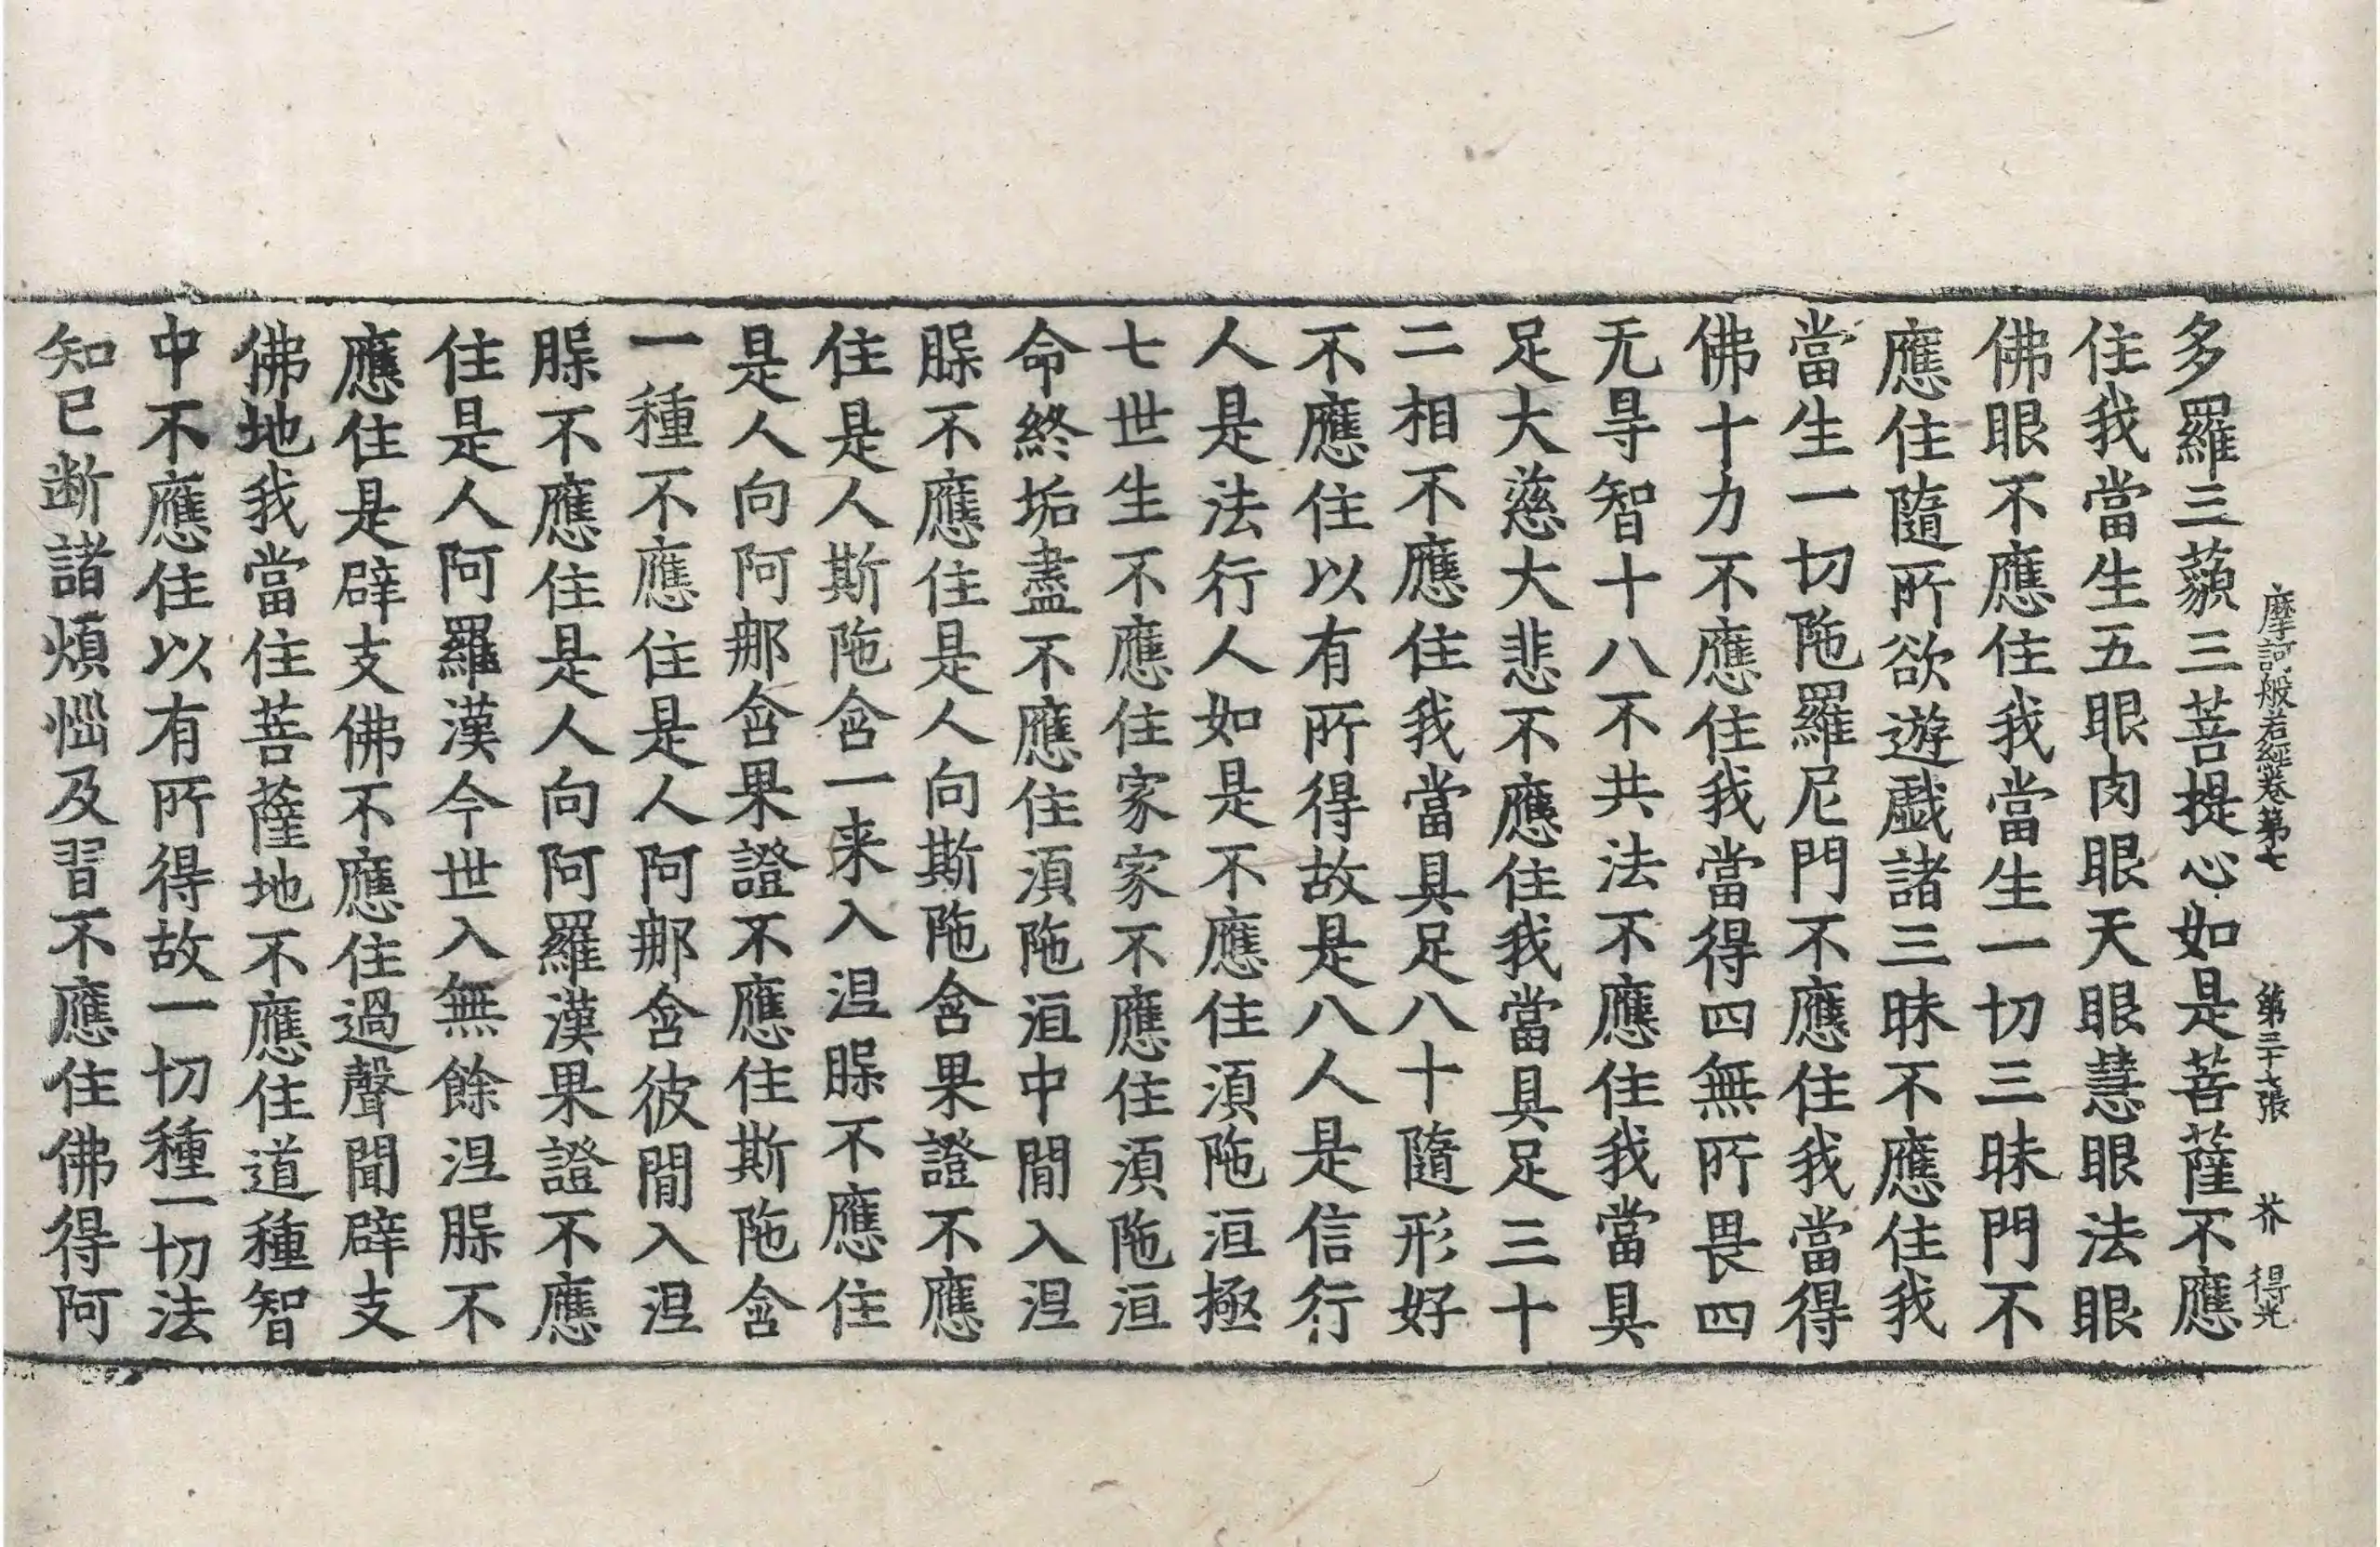 摩訶般若經卷第七　第三十七張　芥　得光
多羅三藐三菩提心如是菩薩不應
住我當生五眼肉眼天眼慧眼法眼
佛眼不應住我當生一切三昧門不
應住隨所欲遊戲諸三昧不應住我
當生一切陁羅尼門不應住我當得
佛十力不應住我當得四無所畏四
无㝵智十八不共法不應住我當具
足大慈大悲不應住我當具足三十
二相不應住我當具足八十隨形好
不應住以有所得故是八人是信行
人是法行人如是不應住湏陁洹極
七世生不應住家家不應住湏陁洹
命終垢盡不應住湏陁洹中閒入涅
縣不應住是人向斯陁含果證不應
住是人斯陁含一来入涅縣不應住
是人向阿那含果證不應住斯陁含
一種不應住是人阿那含彼閒入涅
縣不應住是人向阿羅漢果證不應
住是人阿羅漢今世入無餘涅縣不
應住是辟支佛不應住過聲聞辟支
佛地我當住菩薩地不應住道種智
中不應住以有所得故一切種一切法
知已断諸煩惱及習不應住佛得阿